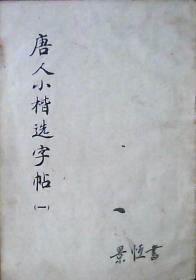 唐人小楷选字帖
(一)
景恒书